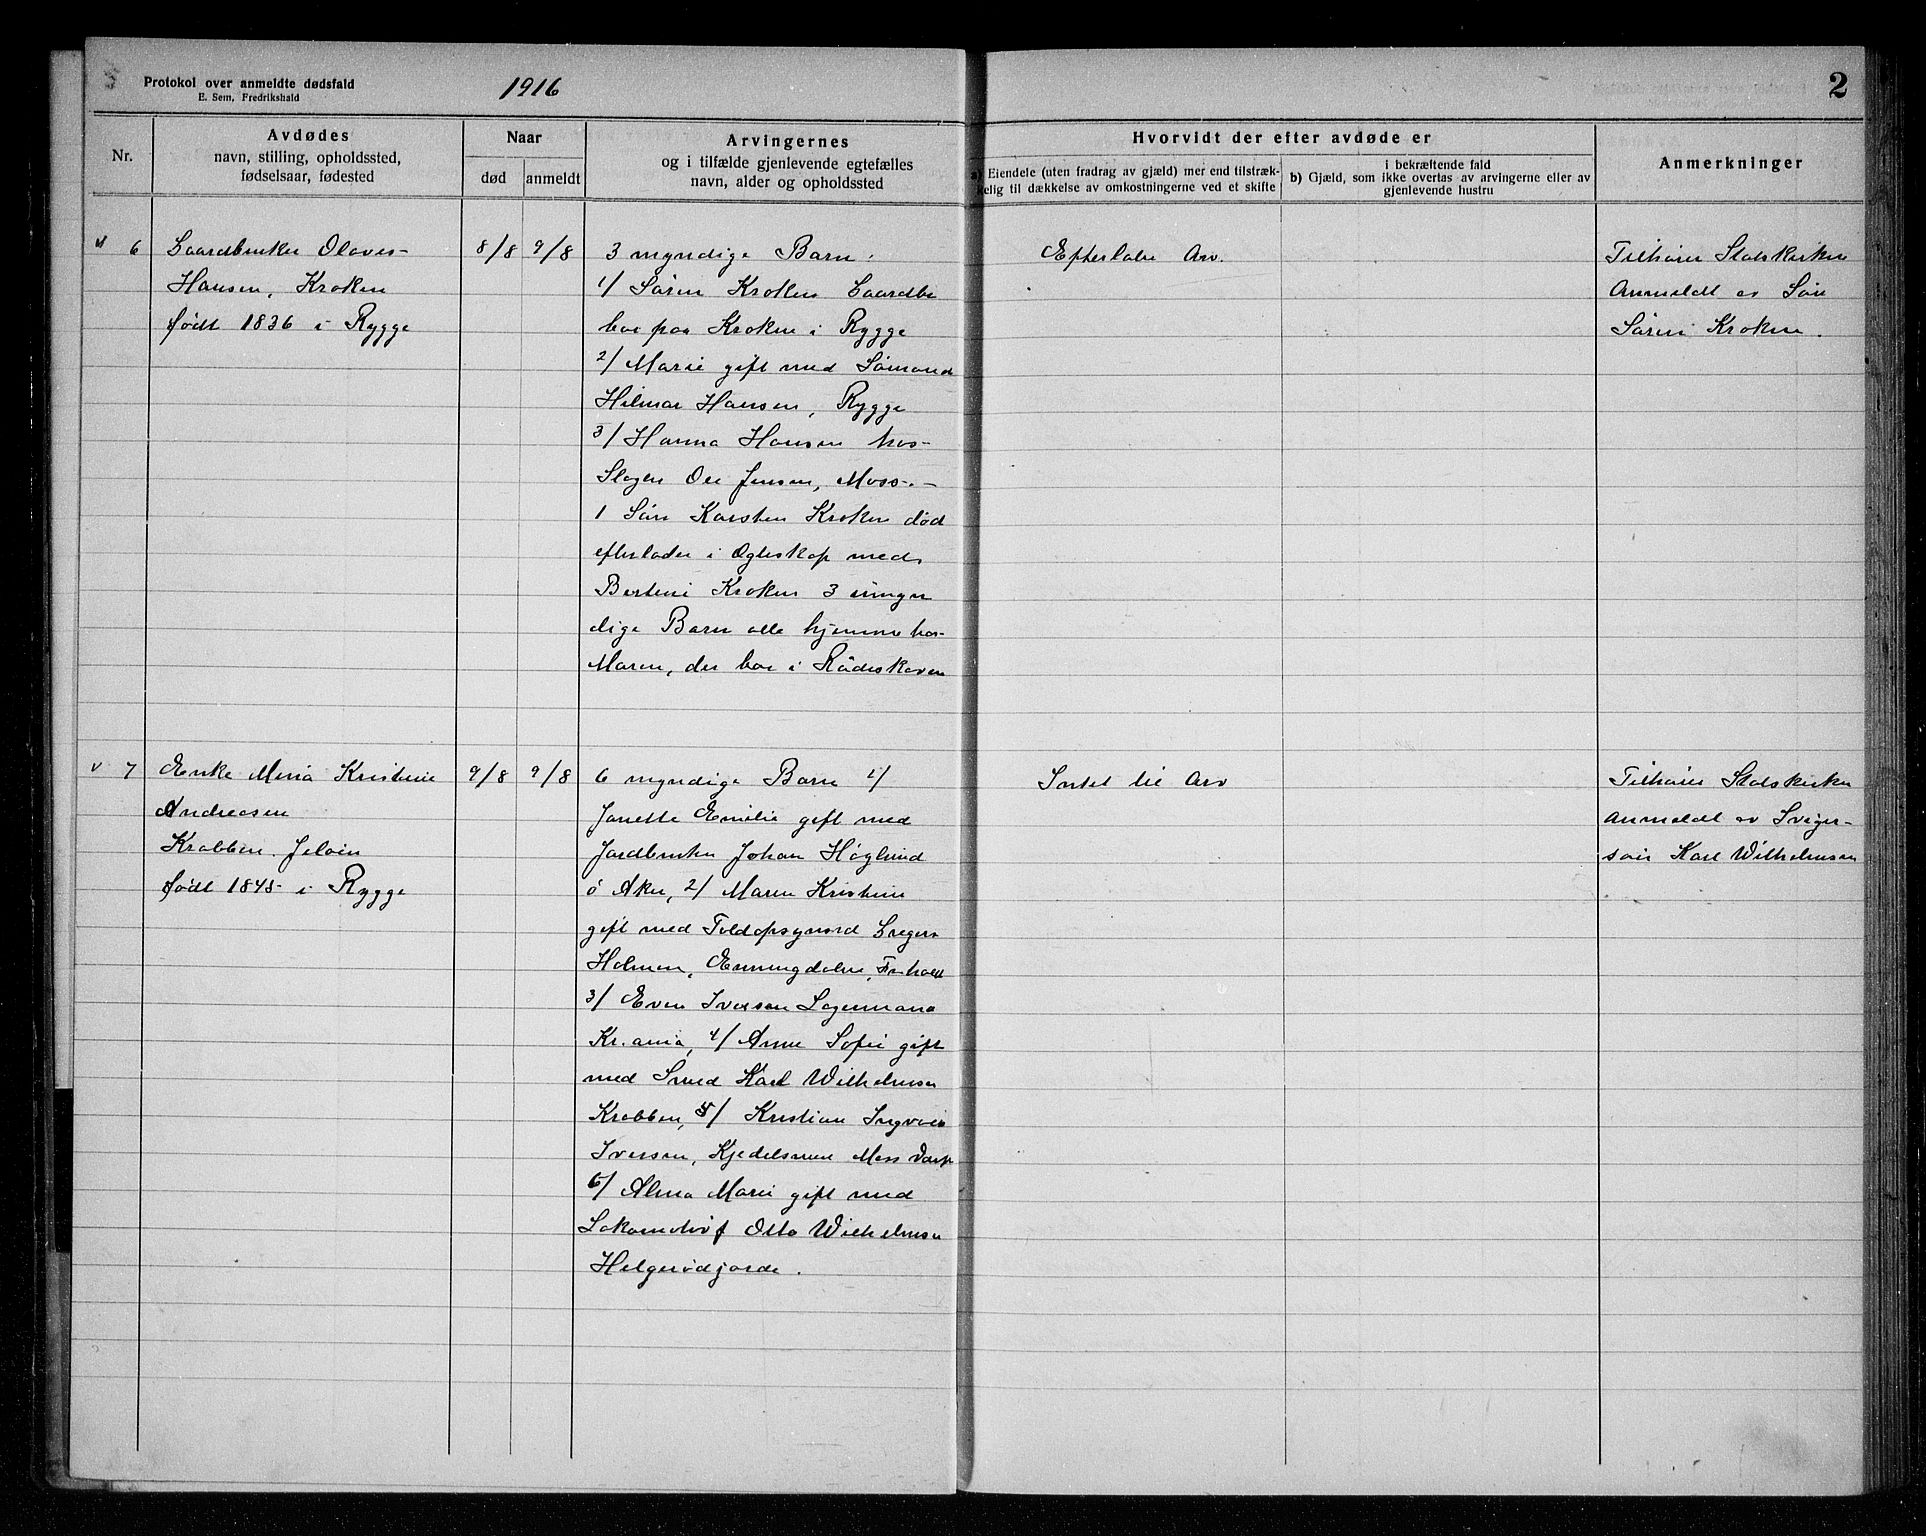 Protokol over anmeldte dødsfald
E. Sem, Fredrikshald
1916
2
Nr.
Avdødes
navn, stilling, opholdssted,
fødselsaar, fødested
Naar
død
anmeldt
Arvingernes
og i tilfælde gjenlevende egtefælles
navn, alder og opholdssted
Hvorvidt der efter avdøde er
a) Eiendele (uten fradrag av gjæld) mer end tilstræk-
kelig til dækkelse av omkostningerne ved et skifte
i bekræftende fald
b) Gjæld, som ikke overtas av arvingerne eller av
gjenlevende hustru
Anmerkninger
6
Gaardbruker Olaves
Hansen, Kroken
født 1836 i Rygge
8/8
9/8
3 myndige Barn:
1/ Søren Kroken Gaardbr
bor paa Kroken i Rygge
2/ Marie gift med Sømand
Hilmar Hansen, Rygge
3/ Hanna Hansen hos
Slagter Ole Jensen, Moss.-
1 Søn Karsten Kroken død
efterlader i Egteskap med
Bertine Kroken 3 umyn
dige Barn alle hjemme hos
Moren, der bor i Rådeskoven
Efterlater Arv.
Tilhører Statskirken
Anmeldt av Søn
Søren Kroken.
7
Enke Mina Kristine
Andreasen
Krabben. Jeløen
født 1845 i Rygge
9/8
9/8
6 myndige Barn 1/
Janette Emilie gift med
Jordbruker Johan Höglund
Aker, 2/ Maren Kristine
gift med Toldopsynsmd Gregers
Holmen, Enningdalen, Fr.hald
3/ Even Iversen Lagermand
Kr.ania, 4/ Anne Sofie gift
med Smed Karl Wilhelmsen
Krabben, 5/ Kristian Ingvald
Iversen, Kjedelsmed Moss Værft
6/ Alma Marie gift med
Lokomotivf Otto Wilhelmsen
Helgerødgjorde.
Intet til Arv
Tilhører Statskirken
Anmeldt av Sviger-
søn Karl Wilhelmsen